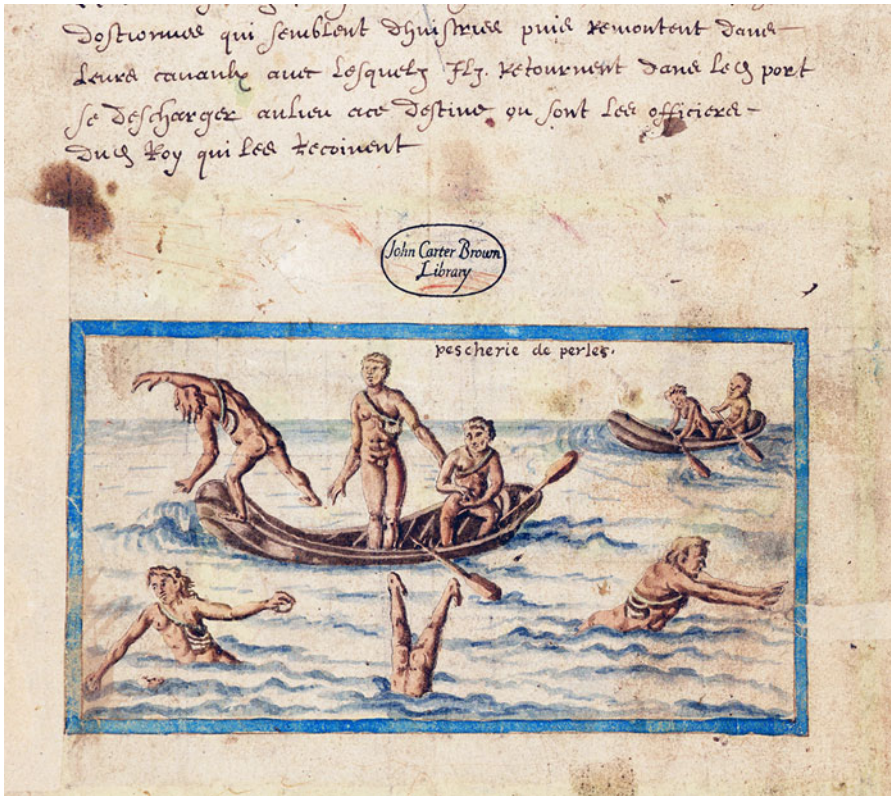 dostiormes qui semblent dhuistries puis remontent dans
leurs canaulx avec lesquelz Ilz retournent dans led port
se descharger au lieu ace destine ou sont les officiers
dud Roy qui les recoivent
John Carter Brown
Library
pescherie de perles.